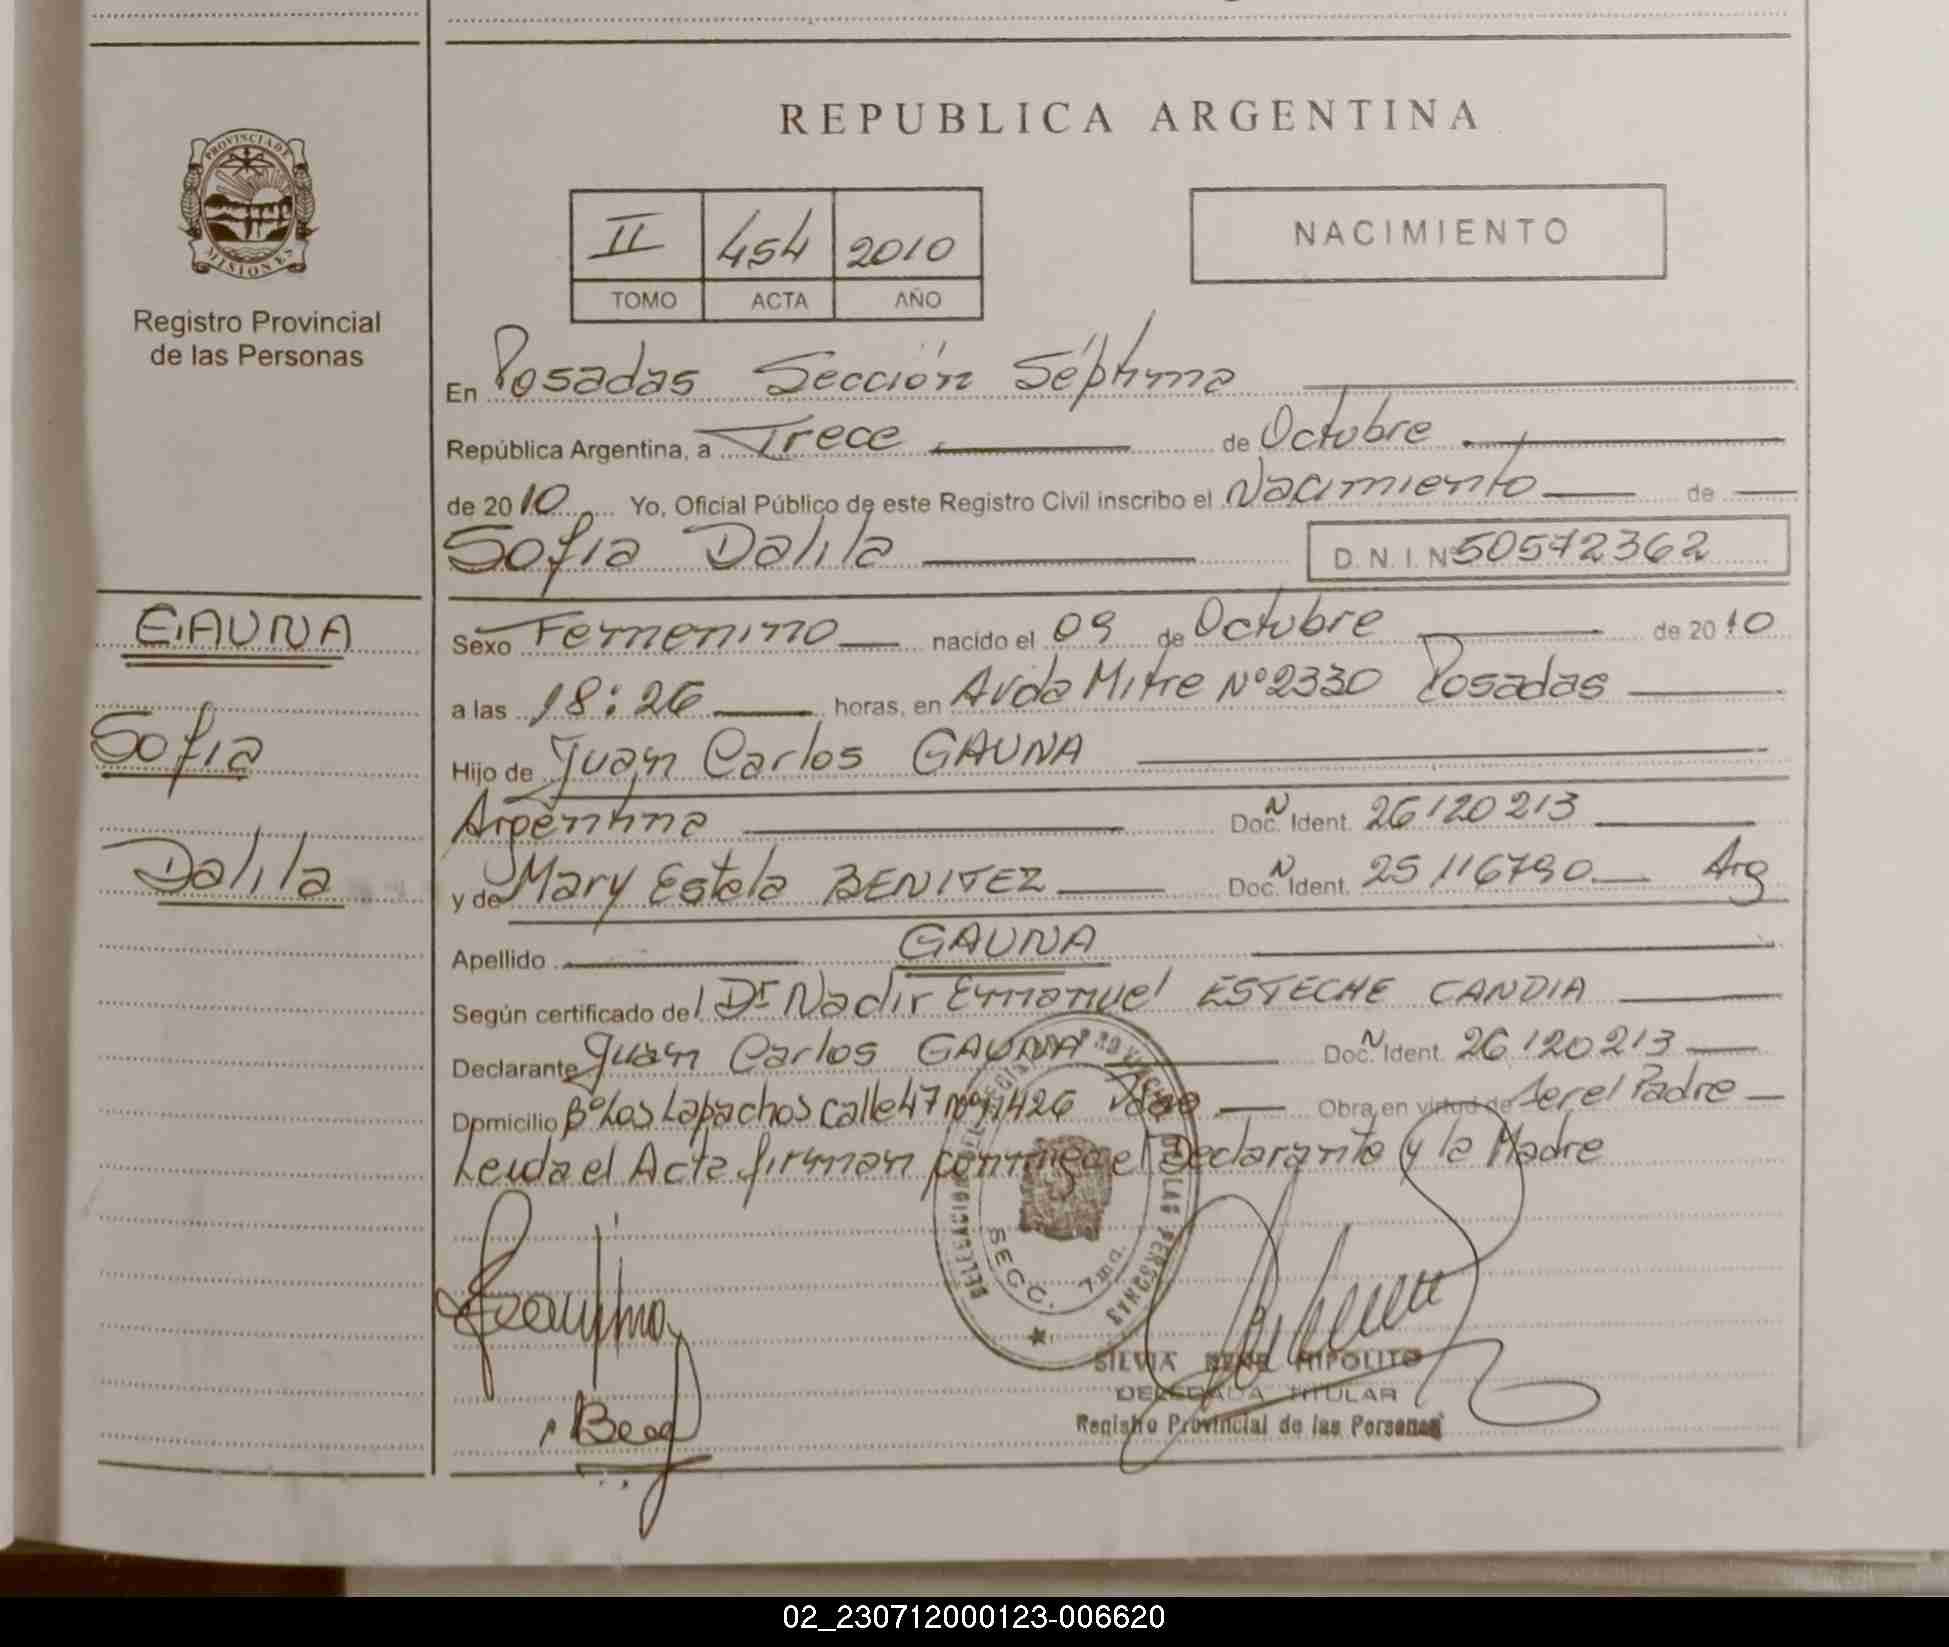 REPUBLICA ARGENTINA
PROVINCIA DE
MISIONES
Registro Provincial
de las Personas
II 454 2010
TOMO ACTA AÑO
NACIMIENTO
En Posadas Sección Séptima
República Argentina, a Trece de Octubre
de 2010 Yo, Oficial Público de este Registro Civil inscribo el Nacimiento de
Sofia Dalila D. N. I. Nº 50572362
GAUNA
Sofia
Dalila
Sexo Femenino nacido el 09 de Octubre de 2010
a las 18:26 horas, en Avda Mitre Nº 2330 Posadas
Hijo de Juan Carlos GAUNA
Argentina Doc. N Ident. 26120213
y de Mary Estela BENITEZ Doc. N Ident. 25116790 Arg
Apellido GAUNA
Según certificado del Dr Nadir Emanuel ESTECHE CANDIA
Declarante Juan Carlos GAUNA Doc. N Ident. 26120213
Domicilio Bº Los Lapachos calle 47 Nº 11426 Obra en virtud de Ser el Padre
Leida el Acta firman conmigo el Declarante y la Madre
DELEGACION DEL REGISTRO PROVINCIAL DE LAS PERSONAS
SECC. 7ma.
SILVIA RENE HIPOLITO
DELEGADA TITULAR
Registro Provincial de las Personas
02_230712000123-006620